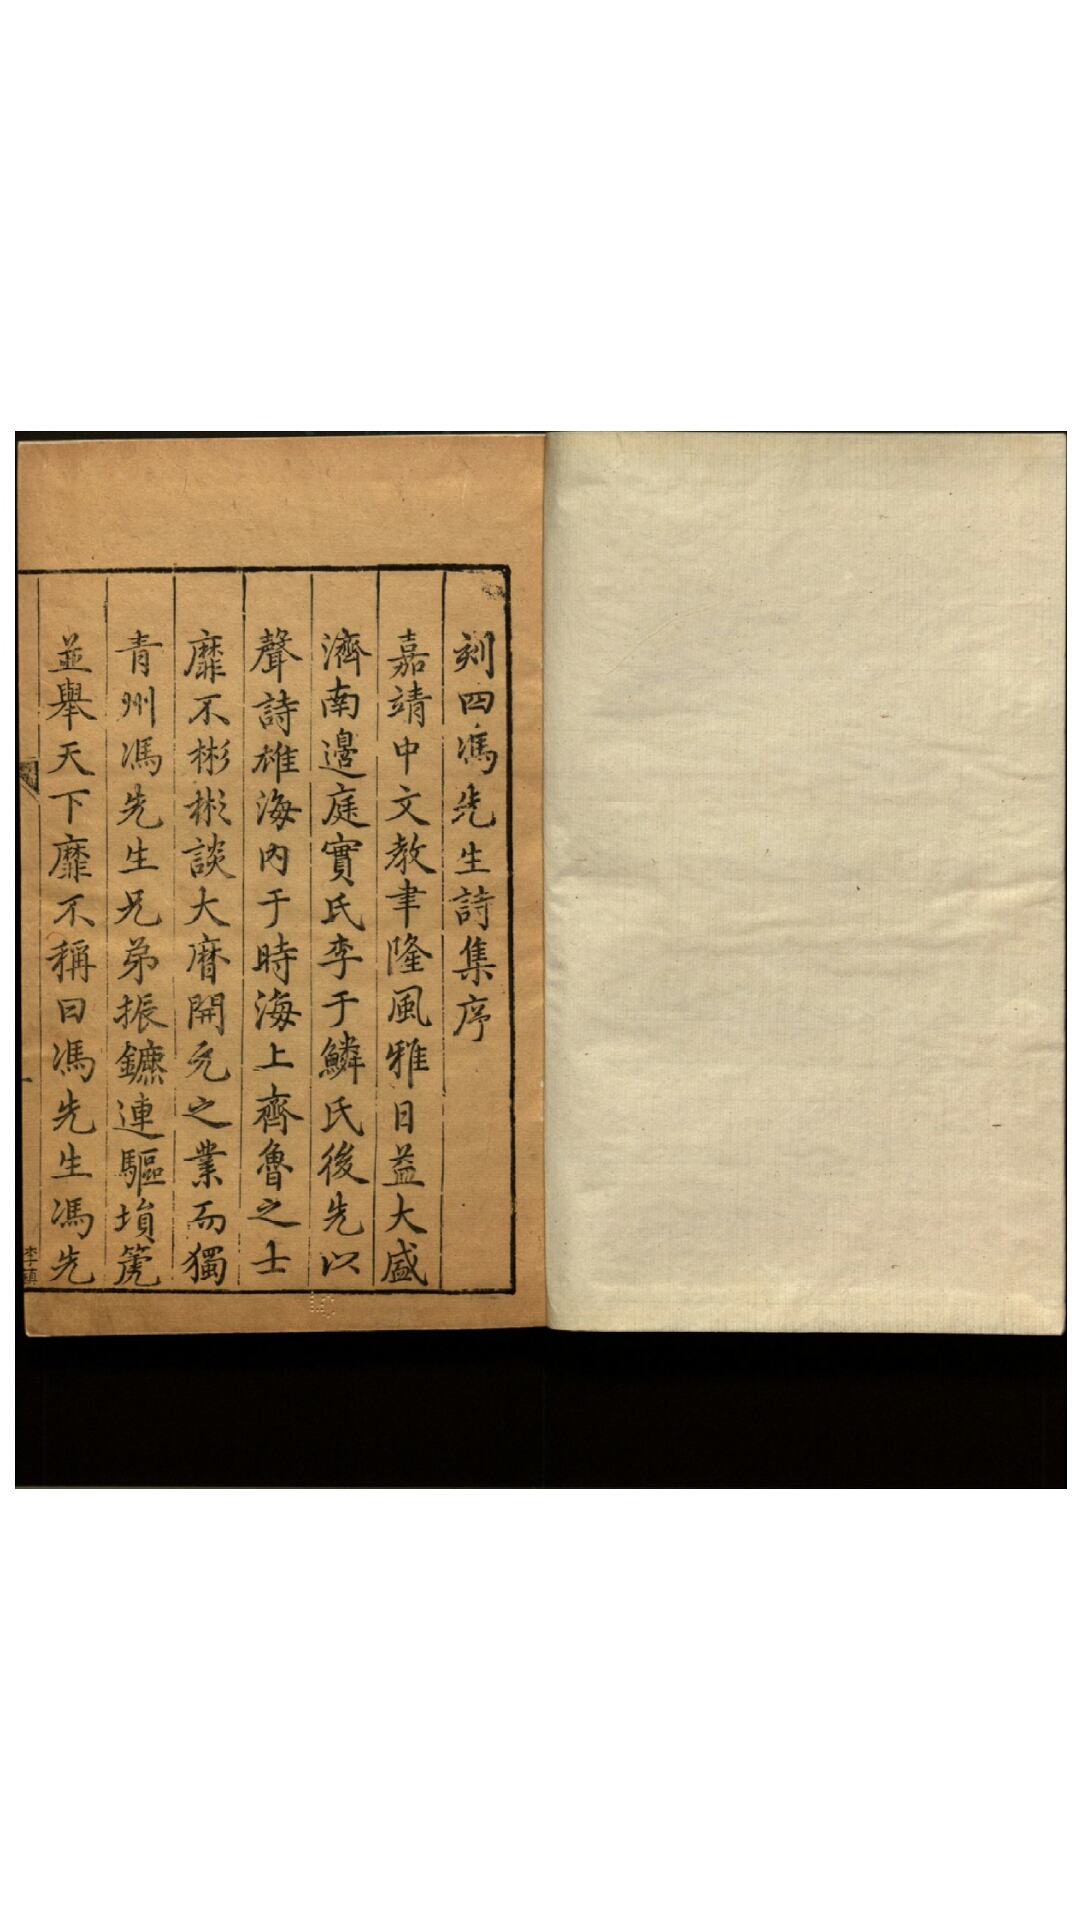 刻四馮先生詩集序
嘉靖中文教聿隆風雅日益大盛
濟南邉庭實氏李于鱗氏後先以
聲詩雄海內于時海上齊魯之士
靡不彬彬談大曆開元之業而獨
青州馮先生兄弟振鑣連驅塤篪
並舉天下靡不稱曰馮先生馮先